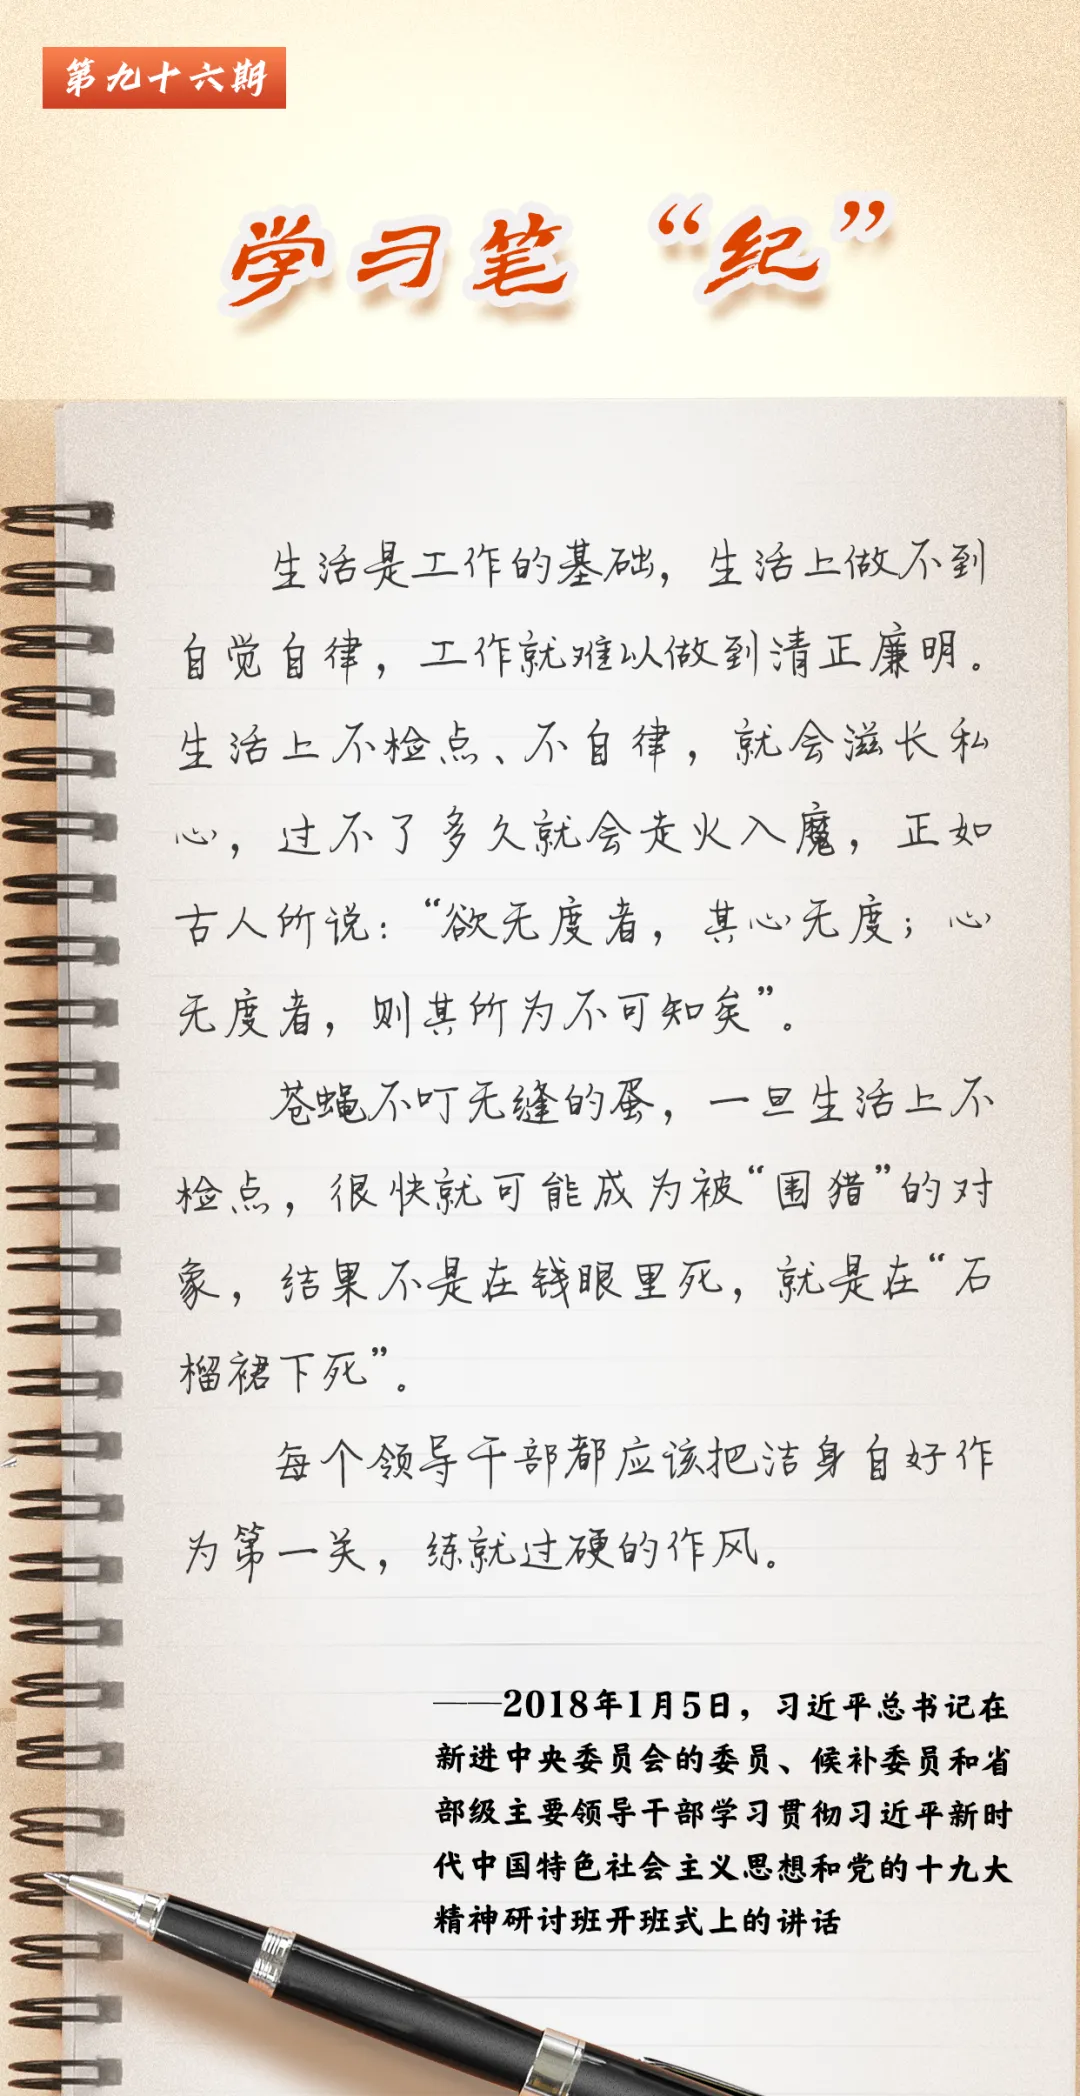 第九十六期
学习笔“纪”
生活是工作的基础，生活上做不到
自觉自律，工作就难以做到清正廉明。
生活上不检点、不自律，就会滋长私
心，过不了多久就会走火入魔，正如
古人所说：“欲无度者，其心无度；心
无度者，则其所为不可知矣”。
苍蝇不叮无缝的蛋，一旦生活上不
检点，很快就可能成为被“围猎”的对
象，结果不是在钱眼里死，就是在“石
榴裙下死”。
每个领导干部都应该把洁身自好作
为第一关，练就过硬的作风。
——2018年1月5日，习近平总书记在
新进中央委员会的委员、候补委员和省
部级主要领导干部学习贯彻习近平新时
代中国特色社会主义思想和党的十九大
精神研讨班开班式上的讲话